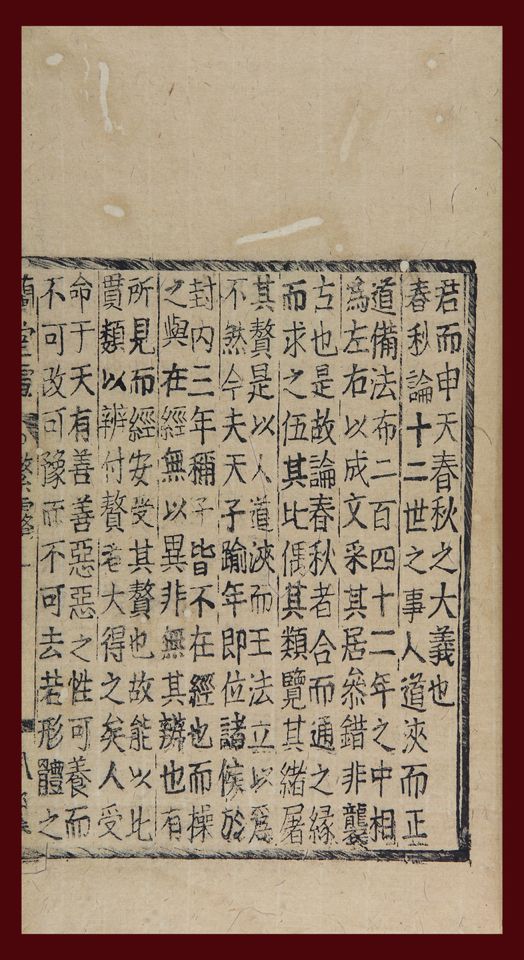 君而申天春秋之大義也
春秋論十二世之事人道浹而正
道備法布二百四十二年之中相
爲左右以成文采其居叅錯非襲
古也是故論春秋者合而通之緣
而求之伍其比偶其類覽其緒屠
其贅是以人道浹而王法立以爲
不然今夫天子踰年即位諸侯於
封内三年稱子皆不在經也而操
之與在經無以異非無其辨也有
所見而經安受其贅也故能以比
貫類以辨付贅者大得之矣人受
命于天有善善惡惡之性可養而
不可改可豫而不可去若形體之